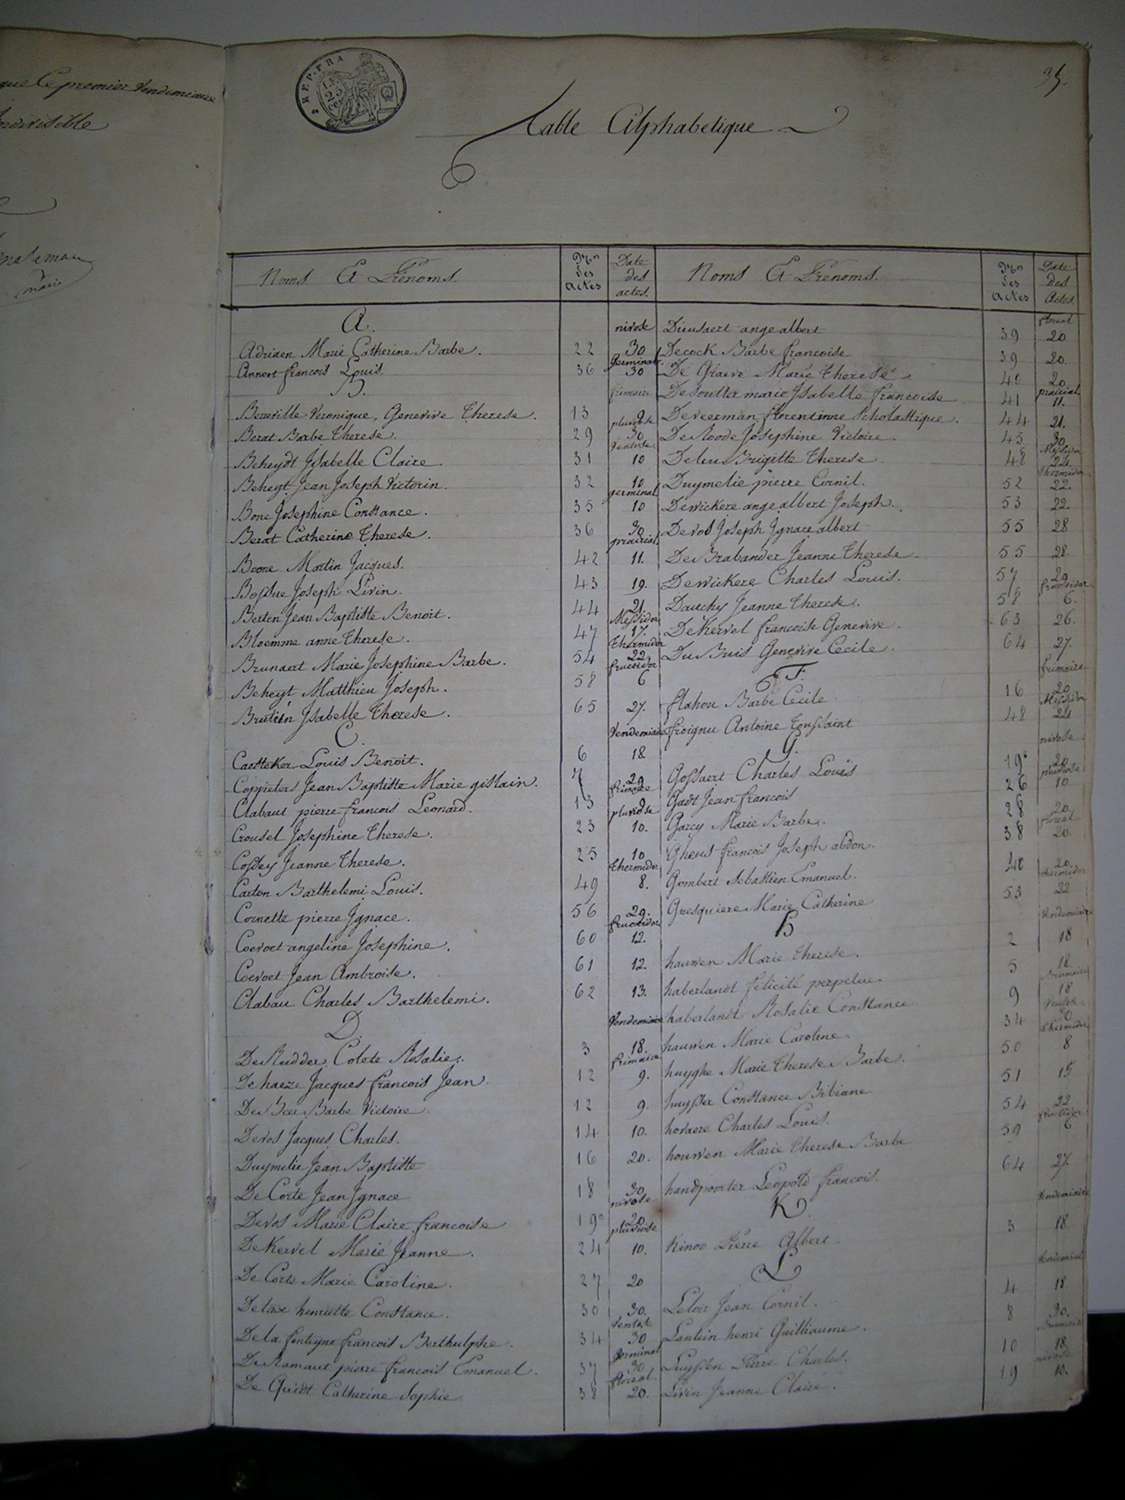 que Ce premier Vendemiaire
indivisible
maire
REP. FRA
25
Table Alphabetique
Noms Et Prénoms
Nos des actes
Date des actes
A.
nivose
Adriaen Marie Catherine Barbe. 22 30
germinal
Annert francois Louis. 36 30
B.
frimaire
Bereville Veronique, Genevive Therese. 13 9
pluviose
Berat Barbe Therese. 29 30
Ventose
Beheydt Isabelle Claire 31 10
Beheyt Jean Joseph Victorin. 32 10
germinal
Bone Josephine Constance. 35 10
Berat Catherine Therese. 36 30
prairial
Boone Martin Jacques. 42 11.
Bossue Joseph Livin. 43 19.
Berten Jean Baptiste Benoit. 44 21
Messidor
Bloemme anne Therese. 47 17.
Thermidor
Brunaert Marie Josephine Barbe. 54 22
fructidor
Beheyt Matthieu Joseph. 58 6
Brutien Isabelle Therese. 65 27.
C.
Vendemiaire
Caetteker Louis Benoit. 6 18
Coppieters Jean Baptiste Marie gislain. 7 29
frimaire
Clabaut pierre francois Leonard. 13 9
pluviose
Crousel Josephine Therese. 23 10.
Cossey Jeanne Therese. 25 10
thermidor
Carton Barthelemi Louis. 49 8.
Cornette pierre Ignace. 56 29.
fructidor
Coevoet angeline Josephine. 60 12.
Coevoet Jean Ambroise. 61 12.
Clabau Charles Barthelemi. 62 13.
D.
Vendemiaire
De Rudder Colete Rosalie. 3 18.
frimaire
De haeze Jacques francois Jean. 12 9.
De Bee Barbe Victoire 12 9.
Devos Jacques Charles. 14 10.
Duymelie Jean Baptiste 16 20.
De Corte Jean Ignace 18 30.
nivose
Devos Marie Claire francoise 19 20
pluviose
De Kervel Marie Jeanne. 24 10.
De Corte Marie Caroline. 27 20
Delaxe henriette Constance. 30 30.
Ventose
De la fonteyne francois Berthulphe. 34 30
Germinal
De Ramaut pierre francois Emanuel. 37 30
floreal
De Quidt Catherine Sophie 38 20.
Noms Et Prénoms
Nos des actes
Date des actes
floreal
Dieusaert ange albert 39 20
Decock Barbe francoise 39 20.
De Graeve Marie Therese 40 20
prairial
De Soutter marie Isabelle francoise 41 11.
Deveerman florentinne Scholastique. 44 21.
De Roode Josephine Victoire. 45 30
Messidor
Deleu Brigitte Therese 48 24
thermidor
Duymelie pierre Cornil. 52 22
Dewickere ange albert Joseph. 53 22
Devos Joseph Ignace albert 55 28
De Brabander Jeanne Therese. 55 28
Dewickere Charles Louis. 57 29
fructidor
Dauchy Jeanne Therese. 58 6.
De Kervel francoise Genevive. 63 26.
Du Buis Genevive Cecile. 64 27.
F.
frimaire
flahou Barbe Cecile 16 20
Messidor
froignu Antoine Toussaint 48 24
G.
nivose
Gossaert Charles Louis 19 20
pluviose
Gadt Jean francois 26 10
Garcy Marie Barbe. 28 20
floreal
Gheus francois Joseph abdon. 38 20.
Gombert Sebastien Emanuel. 40 20.
thermidor
Gresquiere Marie Catherine 53 22
H
Vendemiaire
hauwen Marie therese. 2 18
haberlandt felicité perpetue. 5 18
Brumaire
haberlandt Rosalie Constance 9 18
hauwen Marie Caroline. 34 30
thermidor
huyghe Marie Therese Barbe. 50 8
huysser Constance Bibiane 51 15
hovaere Charles Louis. 54 22
fructidor
houwen Marie Therese Barbe 59 6
handpoorter Leopold francois. 64 27
K.
Vendemiaire
Kinoo Pierre Albert 3 18.
L
Vendemiaire
Leloir Jean Cornil. 4 18
Lantein henri Guilliaume. 8 30.
Brumaire
Luyssen Pierre Charles. 10 18.
nivose
Livin Jeanne Claire. 19 10.